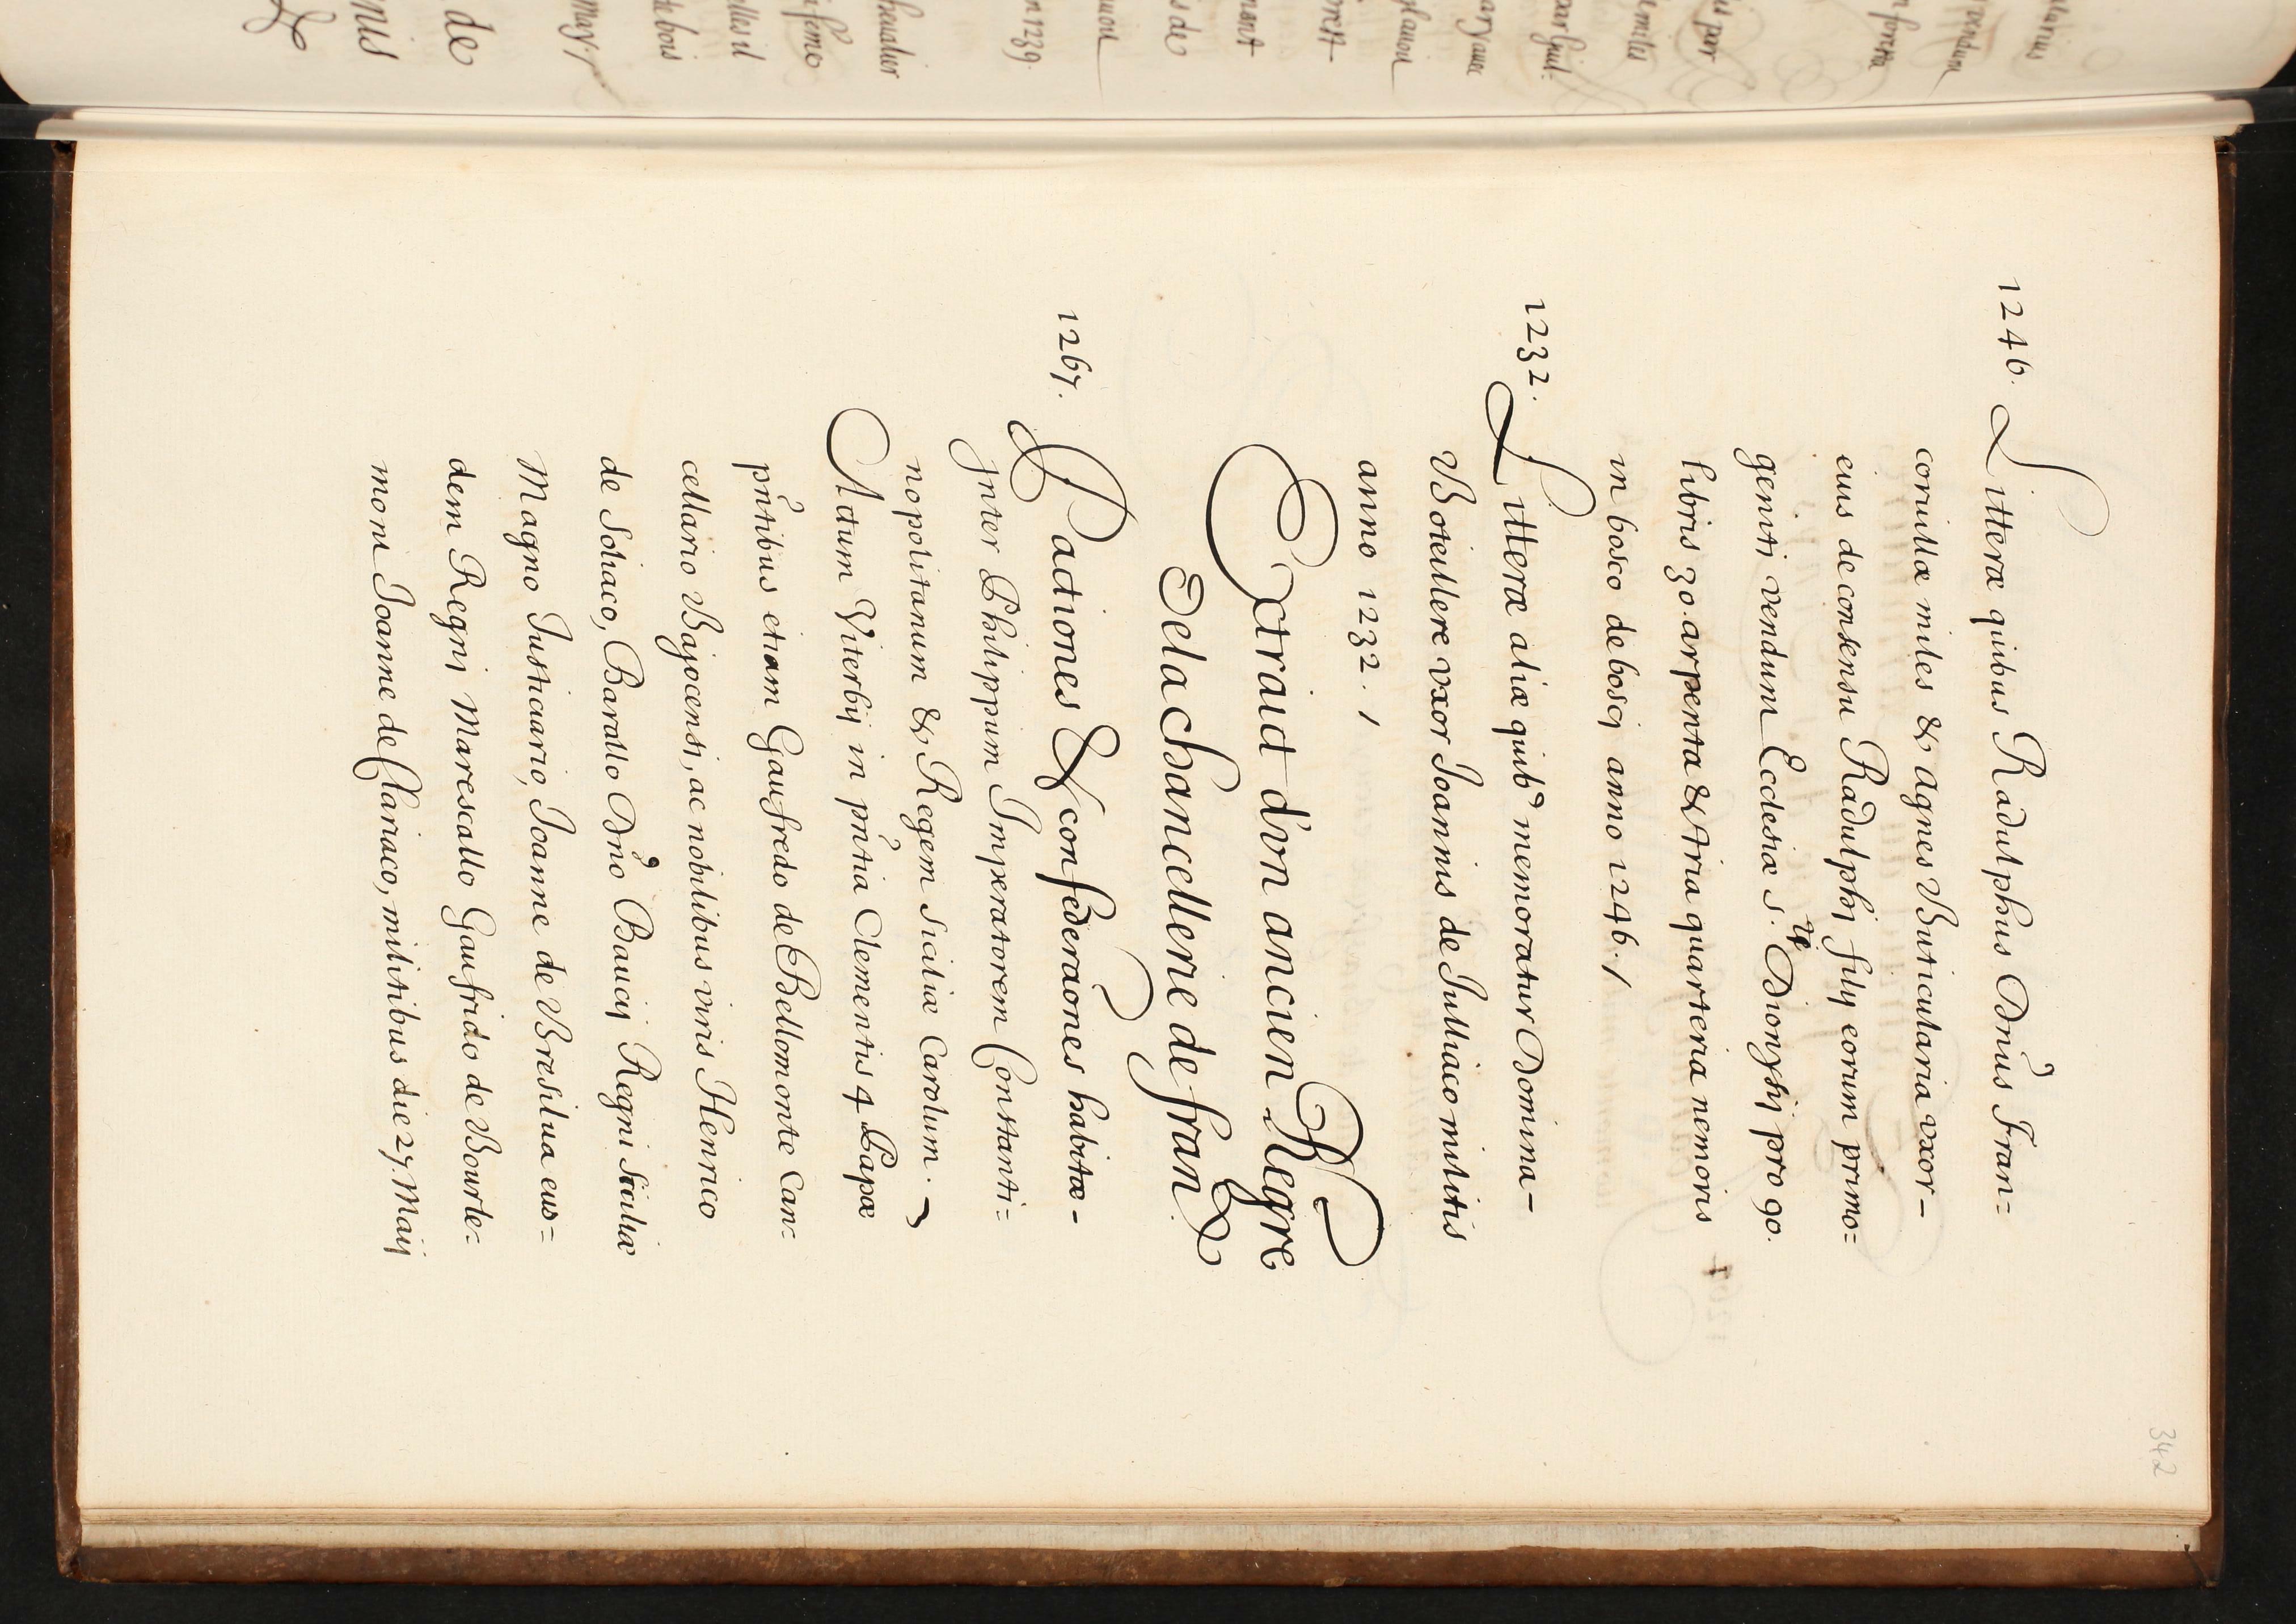 342
1246. Litteræ quibus Radulphus Dñus Fran=
coruillæ miles & Agnes Buticularia vxor-
eius de consensu Radulphj filij eorum primo=
geniti vendum Ecclesiæ S.ti Dionysij pro 90.
libris 30. arpenta & tria quarteria nemoris
in bosco de boscj anno 1246. /
1232. Litteræ aliæ quib9 memoratur Domina-
Boteillere vxor Joannis de Julliaco militis
anno 1232. /
Extraict d'vn ancien Regre
De la chancellerie de fran.
1267. Pactiones & confederaones habitæ-
Jnter Philippum Imperatorem Constanti=
nopolitanum & Regem Siciliæ Carolum.
Actum Viterbij in pñtia Clementis 4 Papæ
pñtibus etiam Gaufredo de Bellomonte Can=
cellario Bajocensi, ac nobilibus viris Henrico
de Soliaco, Barallo Dño Baucij Regni Siciliæ
Magno Justiciario, Joanne de Bresilua eius=
dem Regnj Marescallo Gaufrido de Bourle=
mont Joanne de Clariaco, militibus die 27 Maij